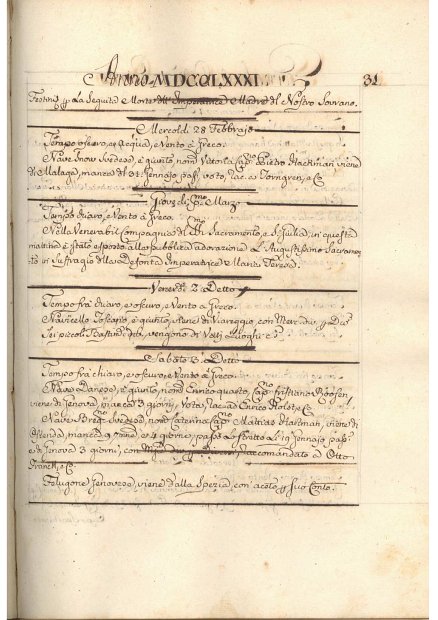 Anno MDCCLXXXI 31
la Seguita Morte Imperatrice Madre del Nostro Sovrano.
Mercoldi 28 Febbrajo
Tempo oscuro, et acqua, e Vento a Greco.
Nave Snow Svedese, è giunto, nom. Vittoria, Capno Pietro Hackman viene
di Malaga, manca di 31. Gennajo pass. voto, racc. a Törngren, e C.
Giovedi Pmo Marzo
Tempo chiaro, e Vento a Greco.
Nella Venerabil Compagnia del SSmo Sacramento e S. Giulia, in questa
mattina è stato esposto alla pubblica adorazione L'Augustissimo Sacramen
to in Suffragio della Defonta Imperatrice Maria Teresa.
Venerdi 2. Detto
Tempo fra chiaro, e oscuro, e Vento a Greco.
Navicello Toscano, è giunto, viene di Viareggio, con
Sei piccoli Bastimenti, vengono di Varj Luoghi
Sabato 3. Detto
Tempo fra chiaro, e oscuro, e Vento a Greco.
Nave Danese, è giunto, nom. Enrico quarto, Capno Cristiano Roosen,
viene di Genova, manca 3 giorni, Voto, racc. ad Enrico Rolst, e C.
Nave Brigno Svedese, nom. Caterina, Capno Mattias Haltman, viene di
Ostenda, manca 9 e giorni, passò Lo Stretto Li 19 Gennajo pass.
e di Genova 3 giorni, con raccomandato a Otto
Franck, e C.
Felugone Genovese, viene dalla Spezia, con aceto p Suo Conto.